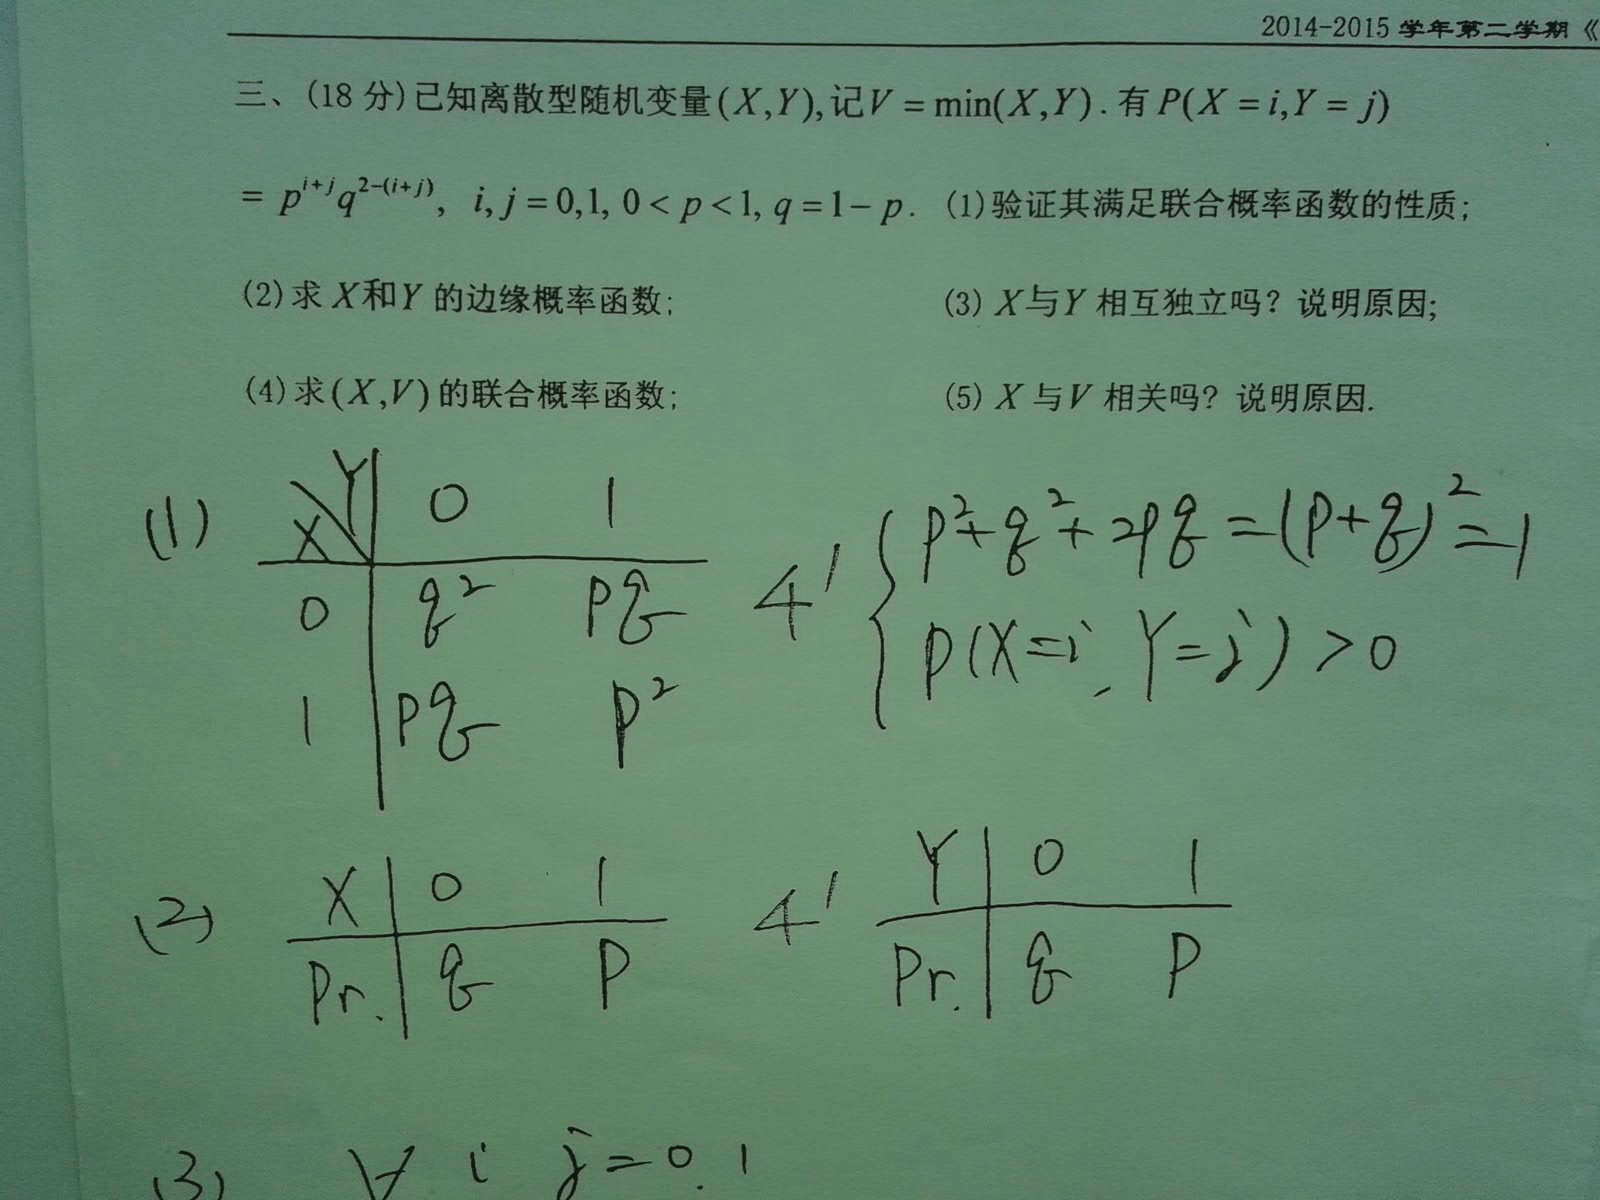 2014-2015 学年第二学期《
三、(18 分)已知离散型随机变量(X,Y),记V = min(X,Y). 有 P(X = i,Y = j)
= p^{i+j}q^{2-(i+j)}, i, j = 0,1, 0 < p < 1, q = 1 - p. (1)验证其满足联合概率函数的性质;
(2)求 X和Y 的边缘概率函数; (3) X与Y 相互独立吗? 说明原因;
(4)求(X,V)的联合概率函数; (5) X 与V 相关吗? 说明原因.
(1) X Y 0 1
0 q² pq
1 pq p²
4' { p²+q²+2pq=(p+q)²=1
p(X=i, Y=j)>0
(2) X 0 1
Pr. q p
4' Y 0 1
Pr. q p
(3) ∀ i j=0.1